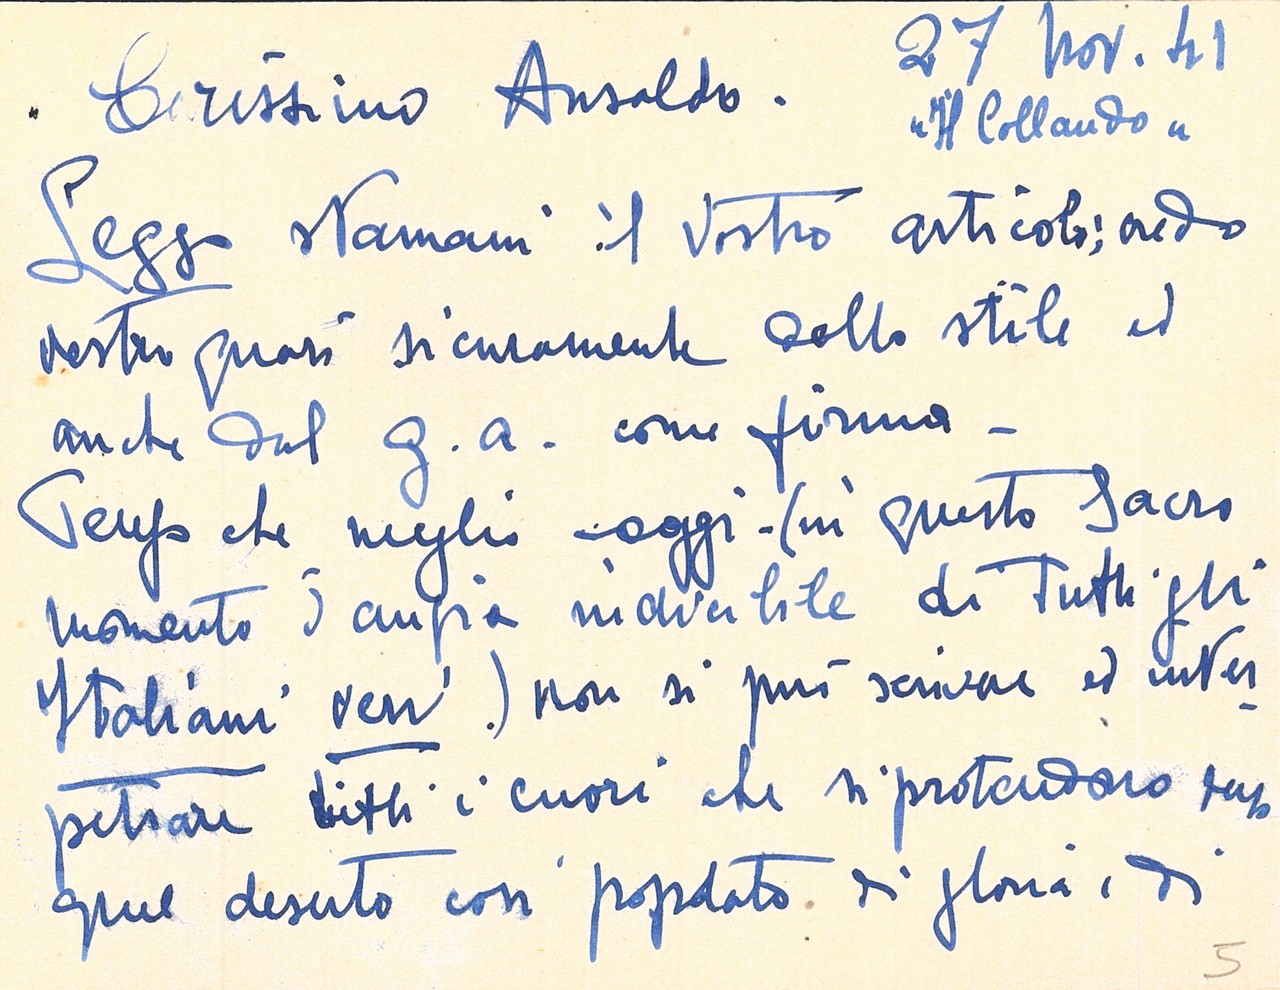 27 Nov. 41
"Il Collaudo"
Carissimo Ansaldo.
Leggo stamani il vostro articolo; credo
vostro quasi sicuramente dallo stile ed
anche dal g. a. come firma -
Penso che meglio - oggi - (in questo sacro
momento d'ansia indicibile di tutti gli
Italiani veri.) non si può scrivere ed inter-
petrare tutti i cuori che si protendono verso
quel deserto così popolato di gloria e di
5